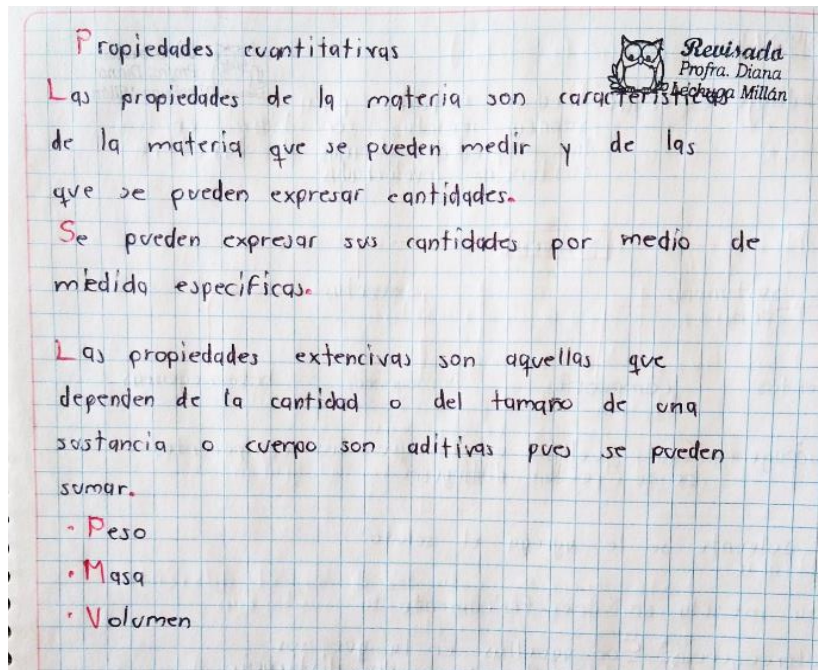 Propiedades cuantitativas
Revisada
Profra. Diana
Lechuga Millán
Las propiedades de la materia son características
de la materia que se pueden medir y de las
que se pueden expresar cantidades.
Se pueden expresar sus cantidades por medio de
medida especificas.
Las propiedades extencivas son aquellas que
dependen de la cantidad o del tamaño de una
sustancia o cuerpo son aditivas pues se pueden
sumar.
· Peso
· Masa
· Volumen